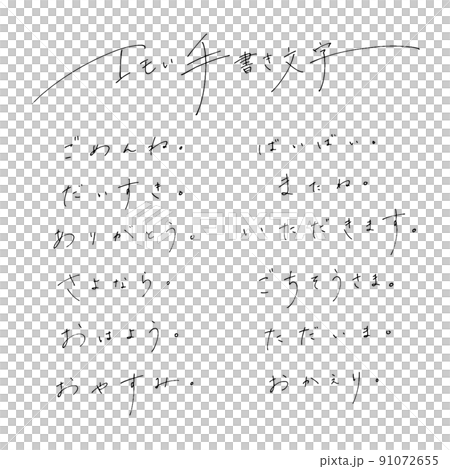 エモい手書き文字
ごめんね。
だいすき。
ありがとう。
さよなら。
おはよう。
おやすみ。
ばいばい。
またね。
いただきます。
ごちそうさま。
ただいま。
おかえり。
PIXTA
pixta.jp - 91072655